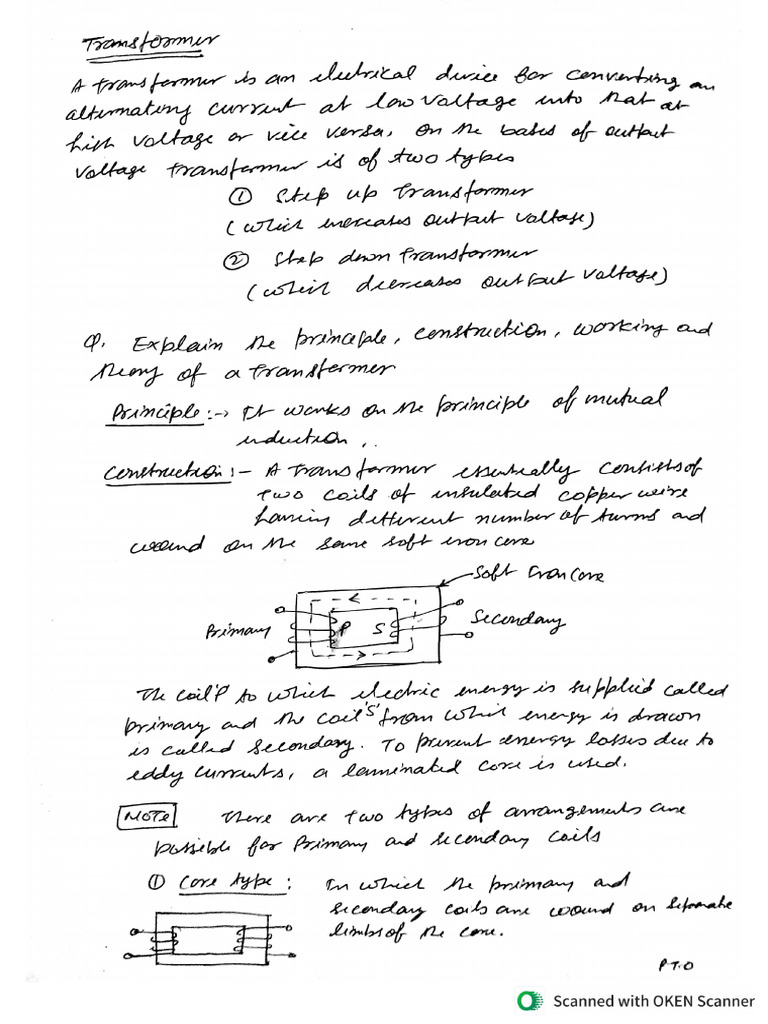 Transformer
A transformer is an electrical device for converting an
alternating current at low voltage into that at
high voltage or vice versa. On the bases of output
voltage transformer is of two types
① Step up Transformer
(which increases output voltage)
② Step down Transformer
(which decreases output voltage)
Q. Explain the principle, construction, working and
theory of a transformer
Principle:→ It works on the principle of mutual
induction..
Construction:- A transformer essentially consists of
two coils of insulated copper wire
having different number of turns and
wound on the same soft iron core
Soft Iron Core
Primary P S Secondary
The coil 'P' to which electric energy is supplied called
primary and the coil 'S' from which energy is drawn
is called Secondary. To prevent energy losses due to
eddy currents, a laminated core is used.
NOTE There are two types of arrangements are
possible for Primary and secondary coils
① Core type: In which the primary and
secondary coils are wound on separate
limbs of the core.
P T.O
Scanned with OKEN Scanner